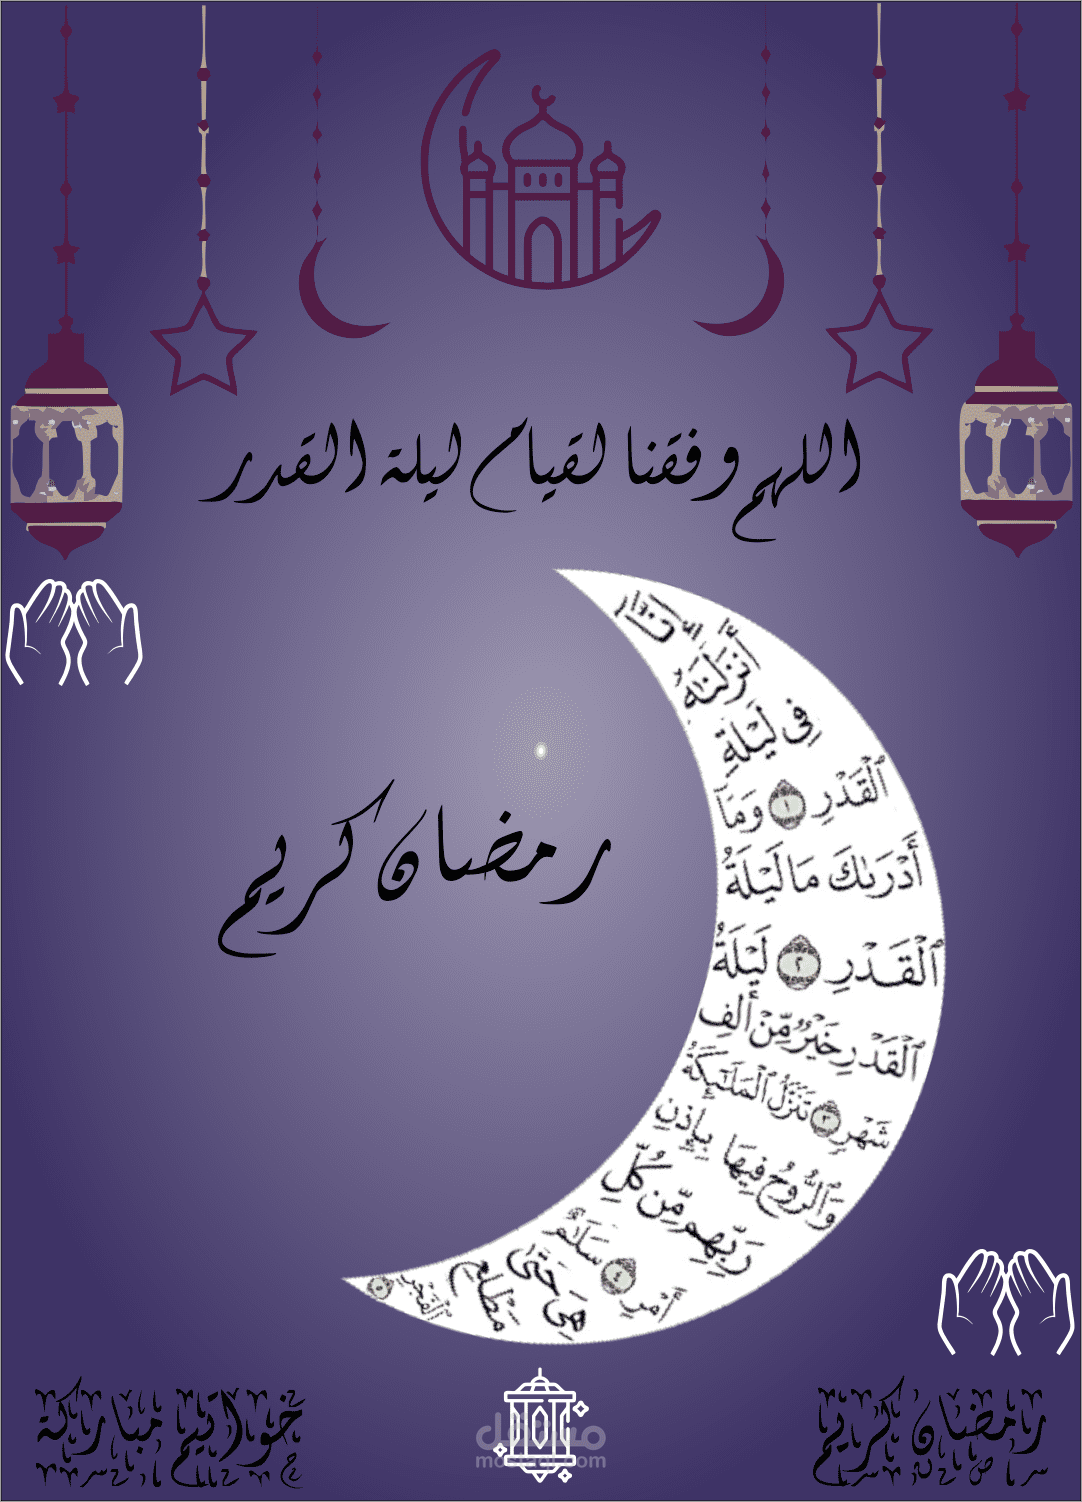 اللهم وفقنا لقيام ليلة القدر
إِنَّآ
أَنزَلْنَٰهُ
فِى لَيْلَةِ
ٱلْقَدْرِ ١ وَمَآ
أَدْرَىٰكَ مَا لَيْلَةُ
ٱلْقَدْرِ ٢ لَيْلَةُ
ٱلْقَدْرِ خَيْرٌ مِّنْ أَلْفِ
شَهْرٍ ٣ تَنَزَّلُ ٱلْمَلَٰٓئِكَةُ
وَٱلرُّوحُ فِيهَا بِإِذْنِ
رَبِّهِم مِّن كُلِّ
أَمْرٍ ٤ سَلَٰمٌ
هِىَ حَتَّىٰ
مَطْلَعِ
ٱلْفَجْرِ ٥
رمضان كريم
رمضان كريم
خواتيم مباركة
مستقل
mostaql.com